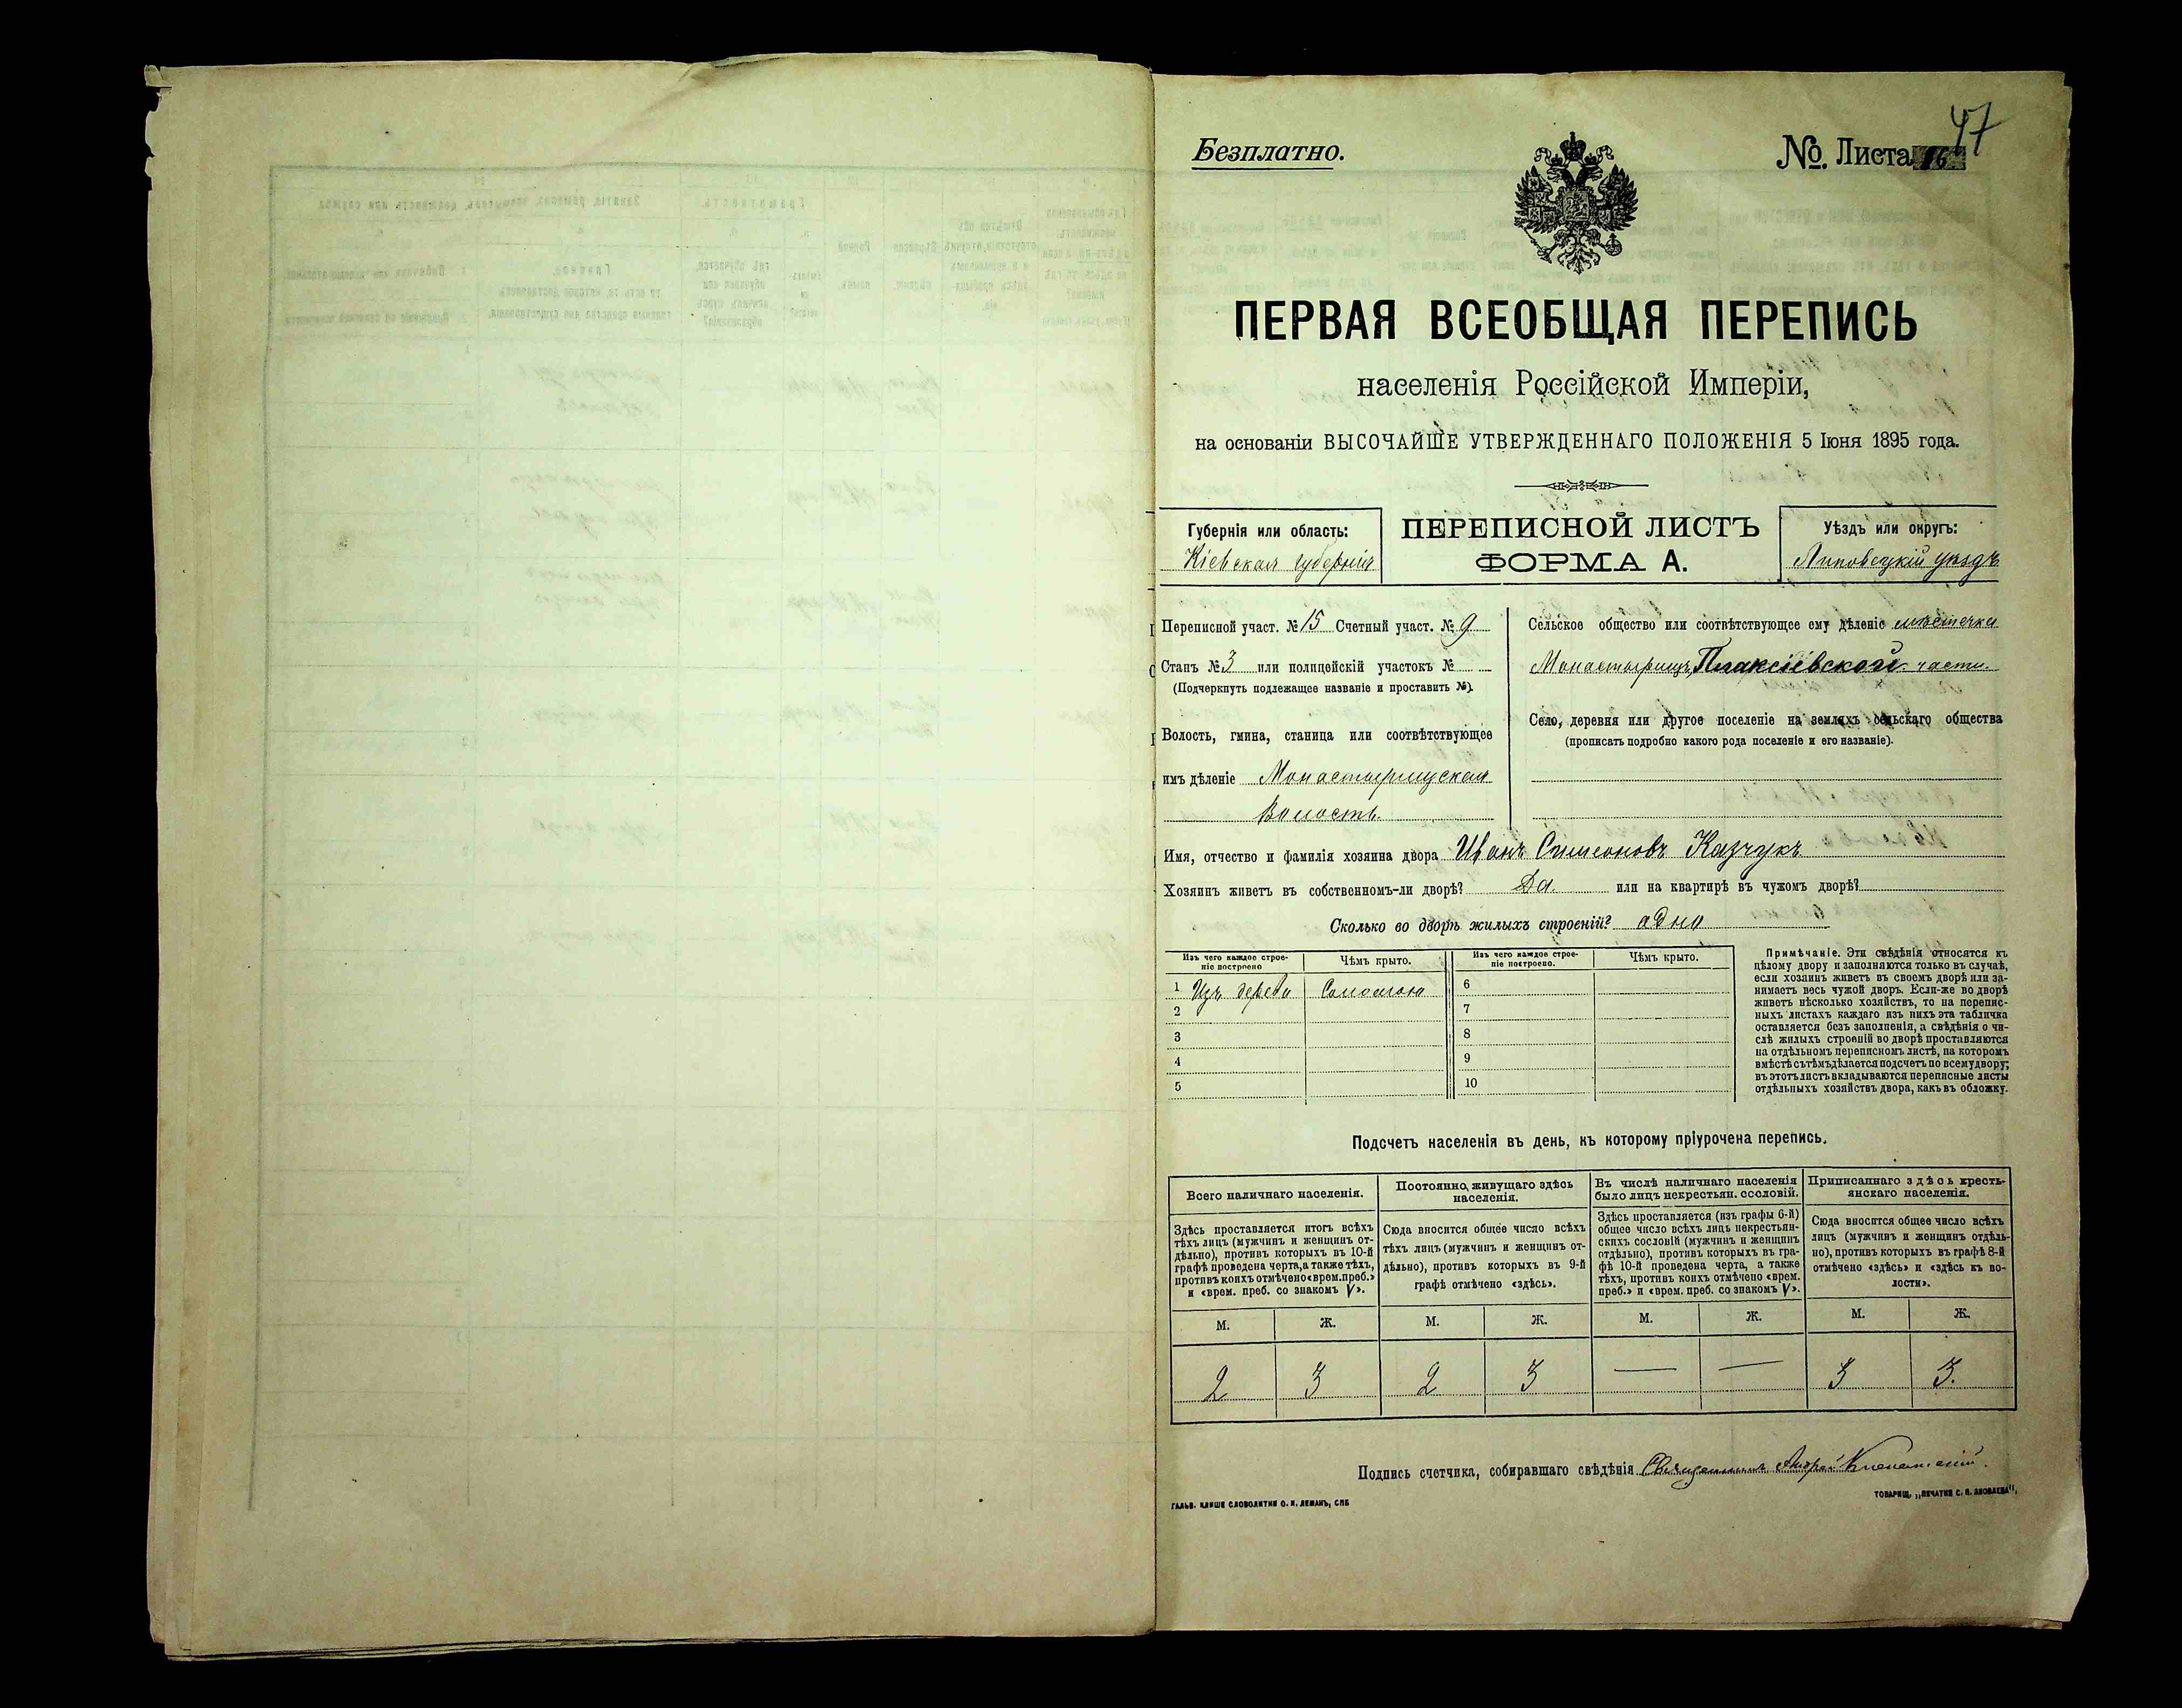 Безплатно.
№ Листа 16
47
ПЕРВАЯ ВСЕОБЩАЯ ПЕРЕПИСЬ
населенія Россійской Имперіи,
на основаніи ВЫСОЧАЙШЕ УТВЕРЖДЕННАГО ПОЛОЖЕНІЯ 5 Іюня 1895 года.
Губернія или область:
Кіевская губернія
ПЕРЕПИСНОЙ ЛИСТЪ
ФОРМА А.
Уѣздъ или округъ:
Липовецкій уѣздъ
Переписной участ. № 15 Счетный участ. № 9
Станъ № 3 или полицейскій участокъ №
(Подчеркнуть подлежащее названіе и проставить №).
Волость, гмина, станица или соотвѣтствующее
имъ дѣленіе Монастырищская
волость.
Сельское общество или соотвѣтствующее ему дѣленіе мѣстечка
Монастырищъ, Плаксіевской части.
Село, деревня или другое поселеніе на земляхъ сельскаго общества
(прописать подробно какого рода поселеніе и его названіе).
Имя, отчество и фамилія хозяина двора Иванъ Симеоновъ Казчукъ
Хозяинъ живетъ въ собственномъ-ли дворѣ? Да. или на квартирѣ въ чужомъ дворѣ?
Сколько во дворѣ жилыхъ строеній? адно
Изъ чего каждое строе-
ніе построено
Чѣмъ крыто.
Изъ чего каждое строе-
ніе построено.
Чѣмъ крыто.
1 Изъ дерева Соломою
2
3
4
5
6
7
8
9
10
Примѣчаніе. Эти свѣдѣнія относятся къ
цѣлому двору и заполняются только въ случаѣ,
если хозяинъ живетъ въ своемъ дворѣ или за-
нимаетъ весь чужой дворъ. Если-же во дворѣ
живетъ нѣсколько хозяйствъ, то на перепис-
ныхъ листахъ каждаго изъ нихъ эта табличка
оставляется безъ заполненія, а свѣдѣнія о чи-
слѣ жилыхъ строеній во дворѣ проставляются
на отдѣльномъ переписномъ листѣ, на которомъ
вмѣстѣ съ тѣмъ дѣлается подсчетъ по всему двору;
въ этотъ листъ вкладываются переписные листы
отдѣльныхъ хозяйствъ двора, какъ въ обложку.
Подсчетъ населенія въ день, къ которому пріурочена перепись.
Всего наличнаго населенія.
Здѣсь проставляется итогъ всѣхъ
тѣхъ лицъ (мужчинъ и женщинъ от-
дѣльно), противъ которыхъ въ 10-й
графѣ проведена черта, а также тѣхъ,
противъ коихъ отмѣчено «врем. преб.»
и «врем. преб. со знакомъ V».
Постоянно живущаго здѣсь
населенія.
Сюда вносится общее число всѣхъ
тѣхъ лицъ (мужчинъ и женщинъ от-
дѣльно), противъ которыхъ въ 9-й
графѣ отмѣчено «здѣсь».
Въ числѣ наличнаго населенія
было лицъ некрестьян. сословій.
Здѣсь проставляется (изъ графы 6-й)
общее число всѣхъ лицъ некрестьян-
скихъ сословій (мужчинъ и женщинъ
отдѣльно), противъ которыхъ въ гра-
фѣ 10-й проведена черта, а также
тѣхъ, противъ коихъ отмѣчено «врем.
преб.» и «врем. преб. со знакомъ V».
Приписаннаго здѣсь кресть-
янскаго населенія.
Сюда вносится общее число всѣхъ
лицъ (мужчинъ и женщинъ отдѣль-
но), противъ которыхъ въ графѣ 8-й
отмѣчено «здѣсь» и «здѣсь къ во-
лости».
М. Ж. М. Ж. М. Ж. М. Ж.
2 3 2 3 — — 3 3.
Подпись счетчика, собиравшаго свѣдѣнія Священникъ Андрей
ГАЛЬВ. КЛИШЕ СЛОВОЛИТНИ О. И. ЛЕМАНЪ, СПБ
ТОВАРИЩ. „ПЕЧАТНЯ С. П. ЯКОВЛЕВА",